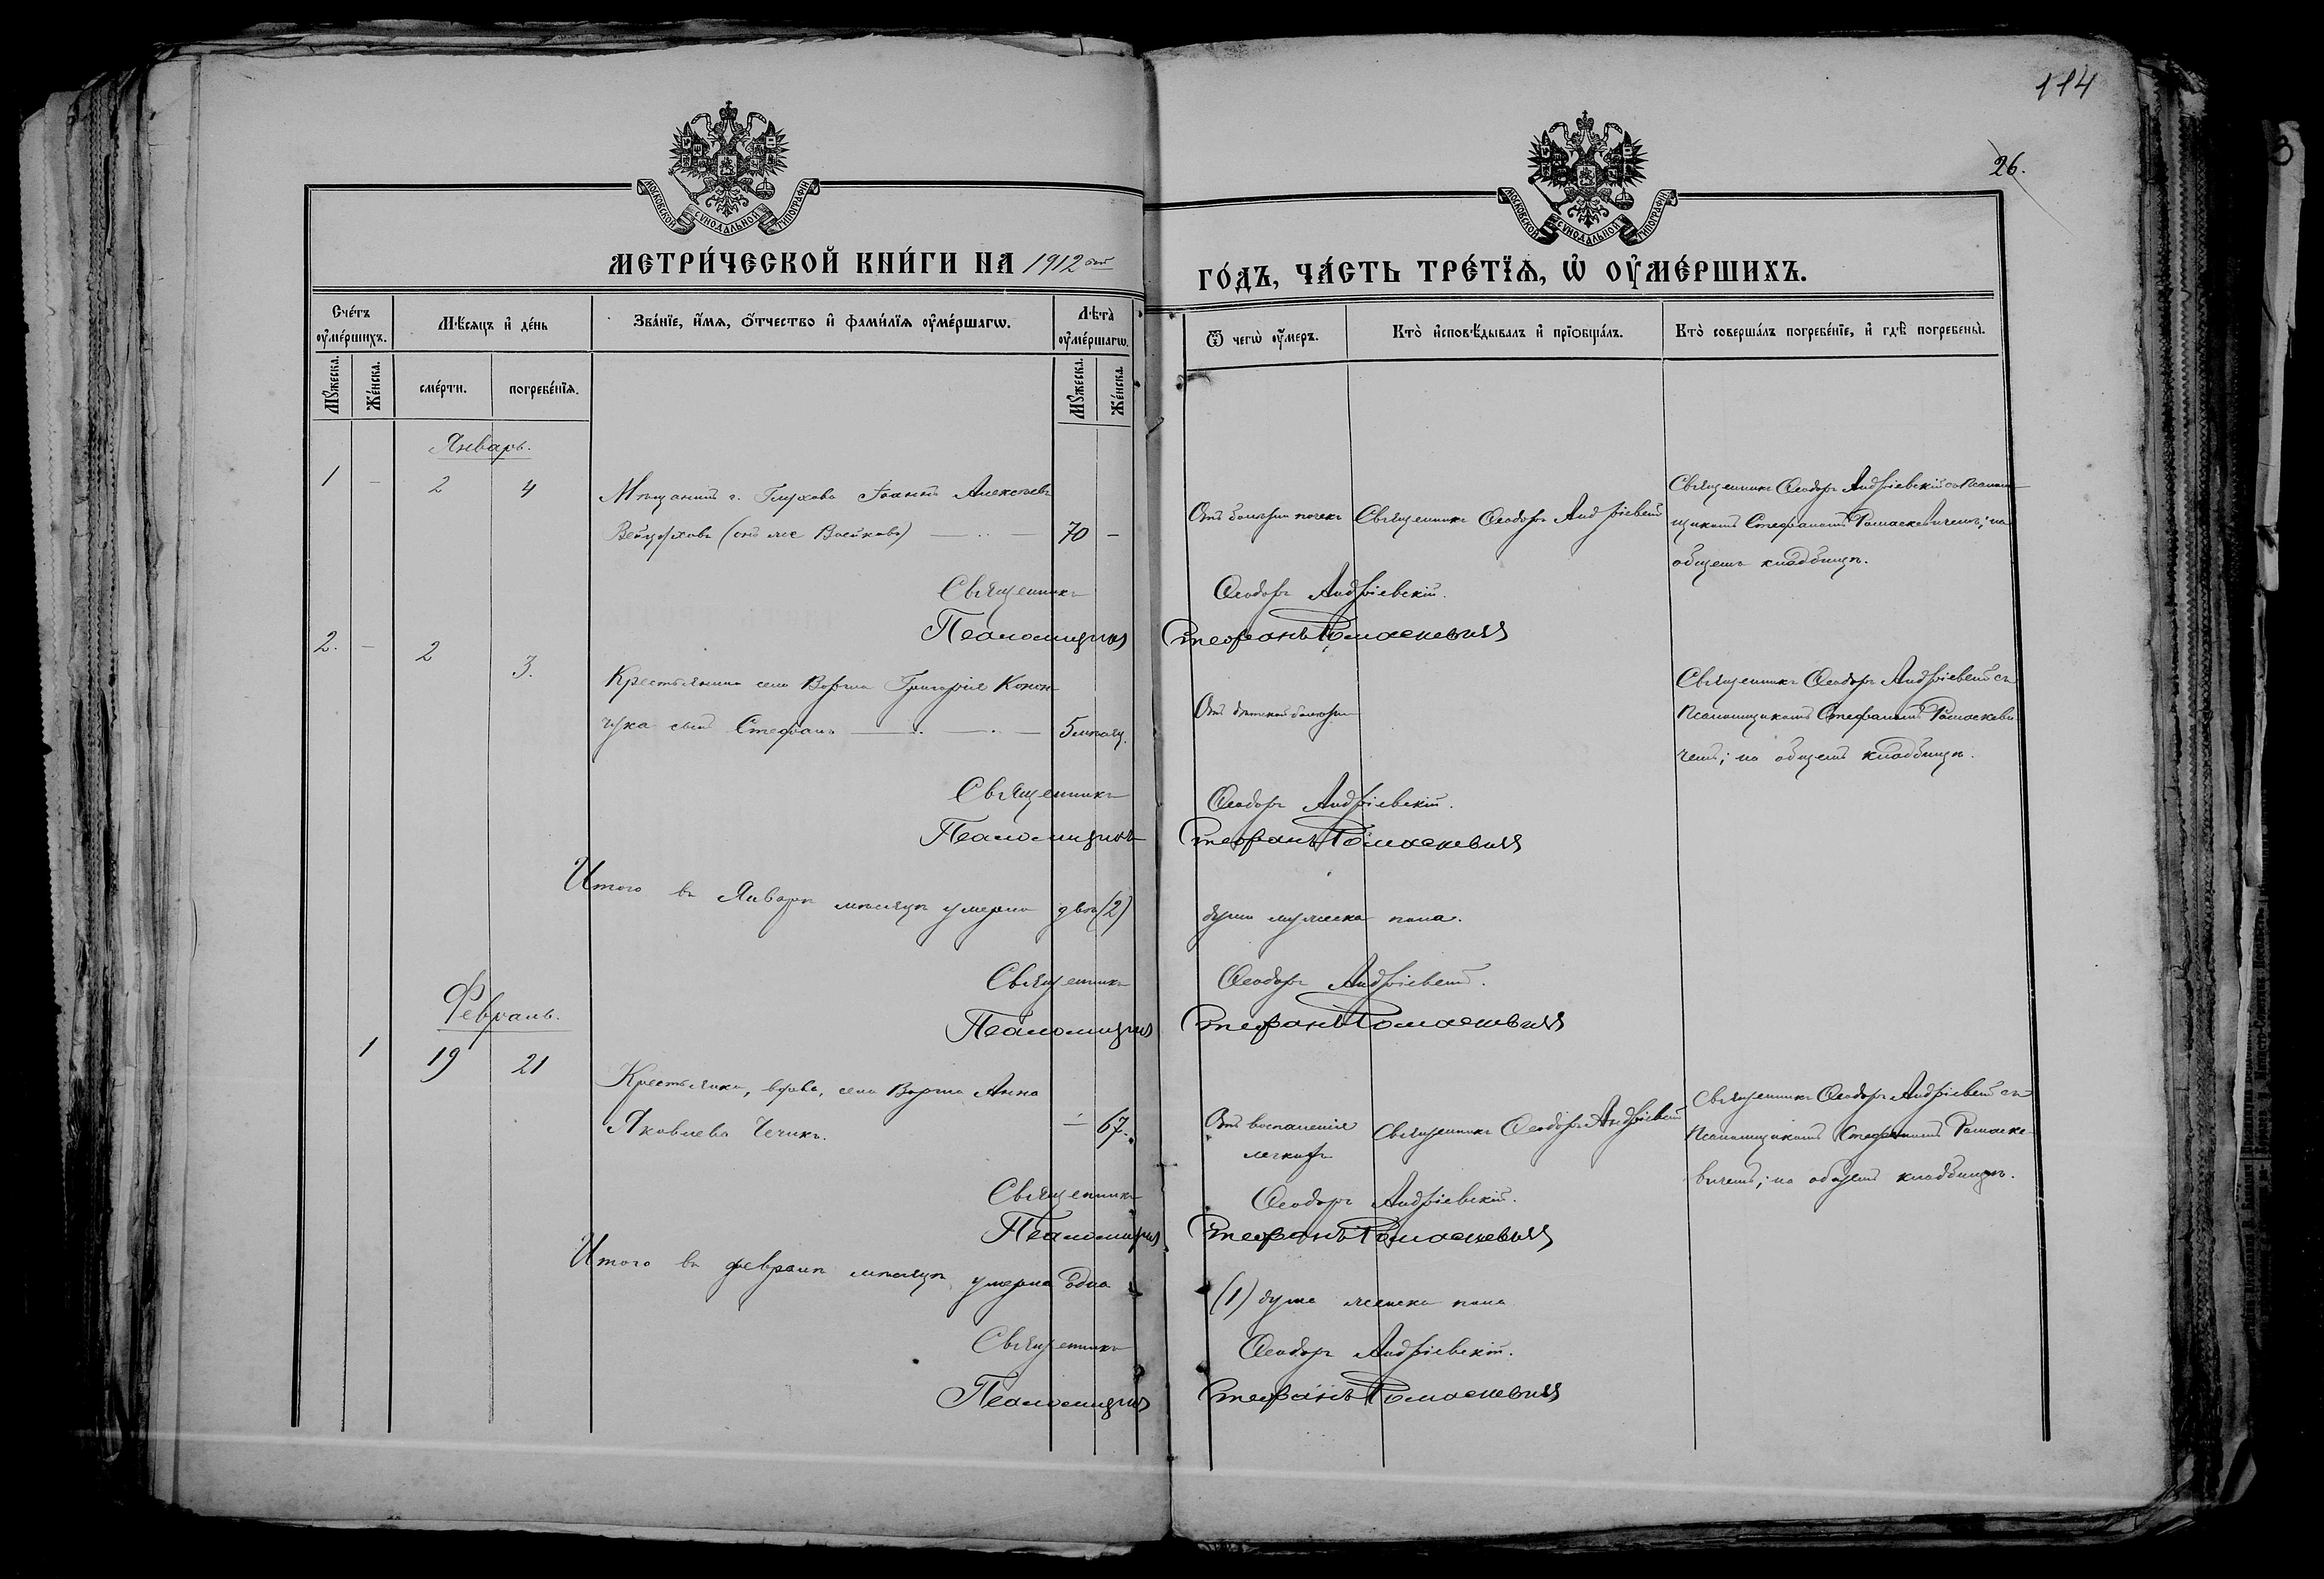 114
26.
МОСКОВСКОЙ СѴНОДАЛЬНОЙ ТИПОГРАФІИ
МОСКОВСКОЙ СѴНОДАЛЬНОЙ ТИПОГРАФІИ
МЕТРИ́ЧЕСКОЙ КНИ́ГИ НА̀ 1912 ой
ГО́ДЪ, ЧА́СТЬ ТРЕ́ТЇѦ, Ѡ҆ ОУ҆МЕ́РШИХЪ.
Сче́тъ оу҆ме́ршихъ.
Мѣ́сяцъ и҆ де́нь
Зва́нїе, и҆́мѧ, ѻ҆́тчество и҆ фами́лїѧ оу҆ме́ршагѡ.
Лѣ́та оу҆ме́ршагѡ.
Ѿ чегѡ̀ оу҆́меръ.
Кто̀ и҆сповѣ́дывалъ и҆ прїѡбща́лъ.
Кто̀ соверша́лъ погребе́нїе, и҆ гдѣ̀ погребены̀.
Мꙋ́жеска.
Же́нска.
сме́рти.
погребе́нїѧ.
Мꙋ́жеска.
Же́нска.
Январь.
1 - 2 4
Мѣщанинъ г. Глухова Іоаннъ Алексѣевъ
(онъ же Воейковъ) 70 -
Отъ болѣзни почекъ
Священникъ Ѳеодоръ Андріевскій
Священникъ Ѳеодоръ Андріевскій съ Псалом-
щикомъ Стефаномъ Ромаскевичемъ; на
общемъ кладбищѣ.
Священникъ Ѳеодоръ Андріевскій.
Псаломщикъ Стефанъ Ромаскевичъ
2. - 2 3.
Крестьянина села Воргла Григорія Конон-
чука сынъ Стефанъ 5 мѣсяц.
Отъ дѣтской болѣзни
Священникъ Ѳеодоръ Андріевскій съ
Псаломщикомъ Стефаномъ Ромаскеви-
чемъ; на общемъ кладбищѣ.
Священникъ Ѳеодоръ Андріевскій.
Псаломщикъ Стефанъ Ромаскевичъ
Итого въ Январѣ мѣсяцѣ умерло двѣ (2) души мужеска пола.
Священникъ Ѳеодоръ Андріевскій.
Псаломщикъ Стефанъ Ромаскевичъ
Февраль.
1 19 21
Крестьянка, вдова, села Воргла Анна
Яковлева Чечикъ. - 67.
Отъ воспаленія
легкихъ
Священникъ Ѳеодоръ Андріевскій
Священникъ Ѳеодоръ Андріевскій съ
Псаломщикомъ Стефаномъ Ромаске-
вичемъ; на общемъ кладбищѣ.
Священникъ Ѳеодоръ Андріевскій.
Псаломщикъ Стефанъ Ромаскевичъ
Итого въ февралѣ мѣсяцѣ умерла одна (1) душа женска пола
Священникъ Ѳеодоръ Андріевскій.
Псаломщикъ Стефанъ Ромаскевичъ